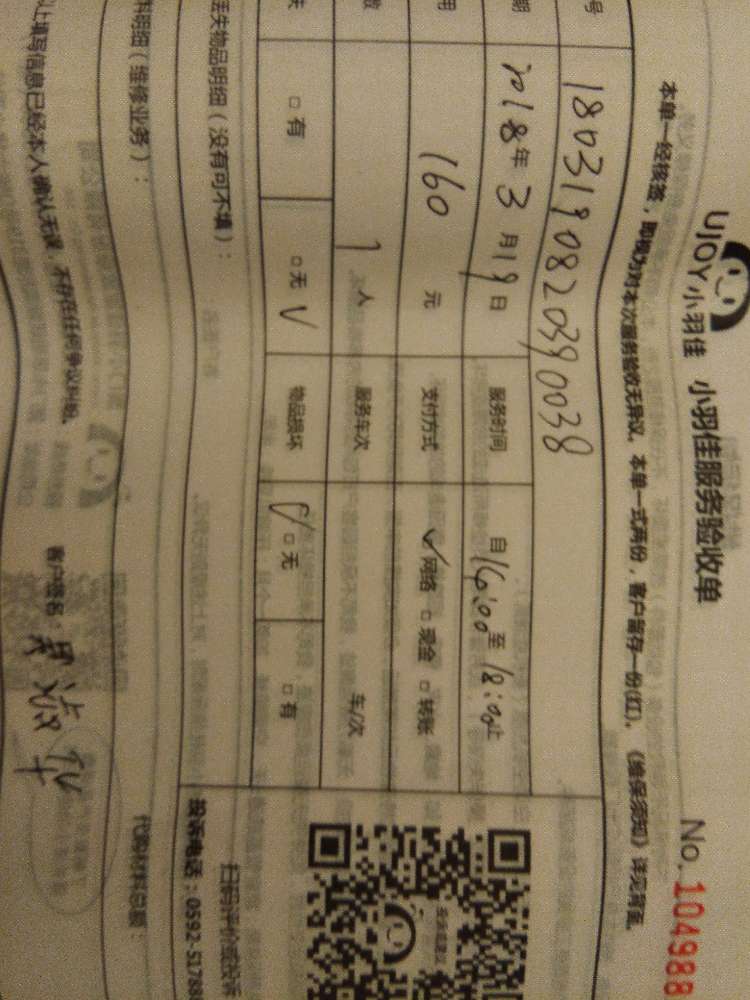 UJOY小羽佳 小羽佳服务验收单
No. 104988
本单一经核签，即视为对本次服务验收无异议。本单一式两份，客户留存一份(红)。《维保须知》详见背面。
号 1803190820390038
期 2018年3月19日 服务时间 自14:00至18:00止
用 160 元 支付方式 ✓网络 □现金 □转账
数 1人 服务车次 车/次
失 □有 □无 ✓ 物品损坏 ✓□无 □有
丢失物品明细（没有可不填）：
扫码评价或投诉
投诉电话：0592-51788
料明细（维修业务）：
代购材料总额：
以上填写信息已经本人确认无误，不存在任何争议纠纷。
客户签名：